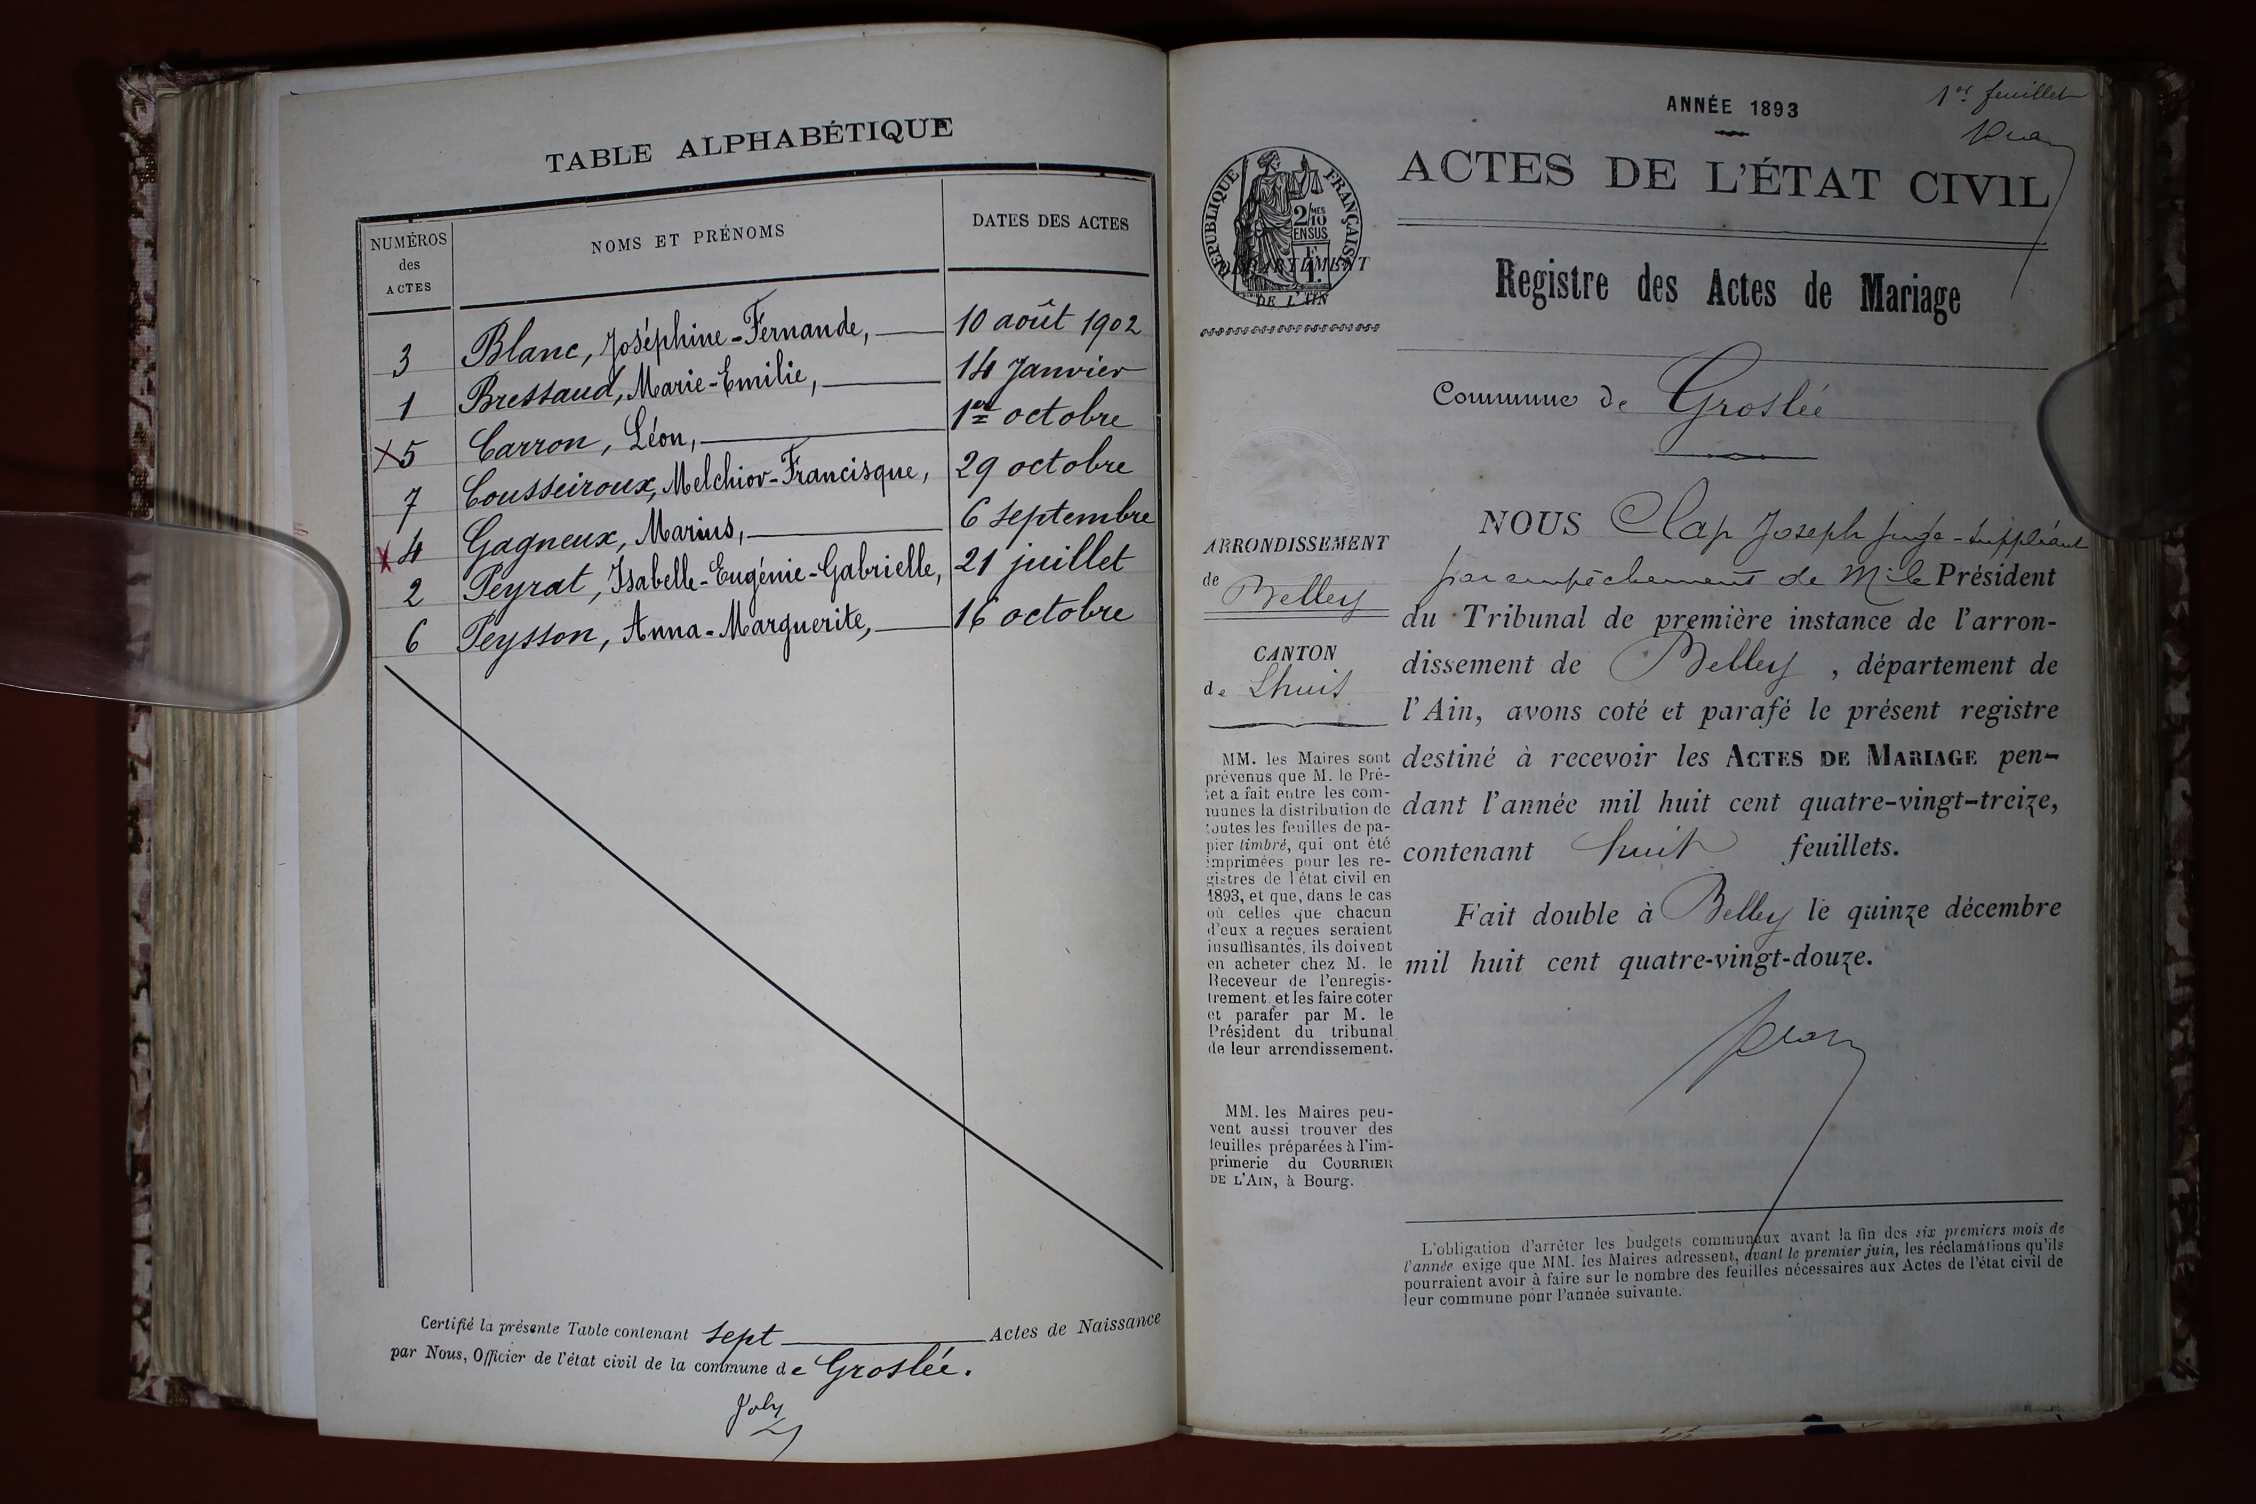 TABLE ALPHABÉTIQUE
NUMÉROS
des
ACTES
NOMS ET PRÉNOMS
DATES DES ACTES
3 Blanc, Joséphine-Fernande, 10 août 1902
1 Bressaud, Marie-Emilie, 14 Janvier
x5 Carron, Léon, 1er octobre
7 Cousseiroux, Melchior-Francisque, 29 octobre
x4 Gagneux, Marius, 6 septembre
2 Peyrat, Isabelle-Eugénie-Gabrielle, 21 juillet
6 Peysson, Anna-Marguerite, 16 octobre
Certifié la présente Table contenant sept Actes de Naissance
par Nous, Officier de l'état civil de la commune de Groslée.
Joly
1er feuillet
ANNÉE 1893
ACTES DE L'ÉTAT CIVIL
RÉPUBLIQUE FRANÇAISE
2/10 MES
EN SUS
DÉPARTEMENT
DE L'AIN
Registre des Actes de Mariage
Commune de Groslée
ARRONDISSEMENT
de Belley
CANTON
de Lhuis
MM. les Maires sont
prévenus que M. le Pré-
fet a fait entre les com-
munes la distribution de
toutes les feuilles de pa-
pier timbré, qui ont été
imprimées pour les re-
gistres de l'état civil en
1893, et que, dans le cas
où celles que chacun
d'eux a reçues seraient
insuffisantes, ils doivent
en acheter chez M. le
Receveur de l'enregis-
trement et les faire coter
et parafer par M. le
Président du tribunal
de leur arrondissement.
MM. les Maires peu-
vent aussi trouver des
feuilles préparées à l'im-
primerie du COURRIER
DE L'AIN, à Bourg.
NOUS Clap Joseph juge-suppléant
par empêchement de M. le Président
du Tribunal de première instance de l'arron-
dissement de Belley, département de
l'Ain, avons coté et parafé le présent registre
destiné à recevoir les ACTES DE MARIAGE pen-
dant l'année mil huit cent quatre-vingt-treize,
contenant huit feuillets.
Fait double à Belley le quinze décembre
mil huit cent quatre-vingt-douze.
L'obligation d'arrêter les budgets communaux avant la fin des six premiers mois de
l'année exige que MM. les Maires adressent, avant le premier juin, les réclamations qu'ils
pourraient avoir à faire sur le nombre des feuilles nécessaires aux Actes de l'état civil de
leur commune pour l'année suivante.